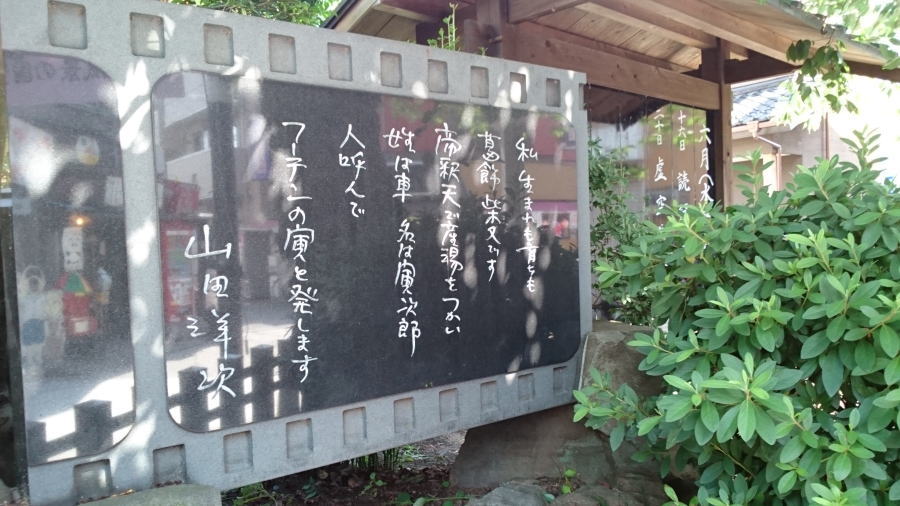 私 生まれも育ちも
葛飾柴又です
帝釈天で産湯をつかい
姓は車 名は寅次郎
人呼んで
フーテンの寅と発します
山田洋次
六月八木
十六日 読
虚空